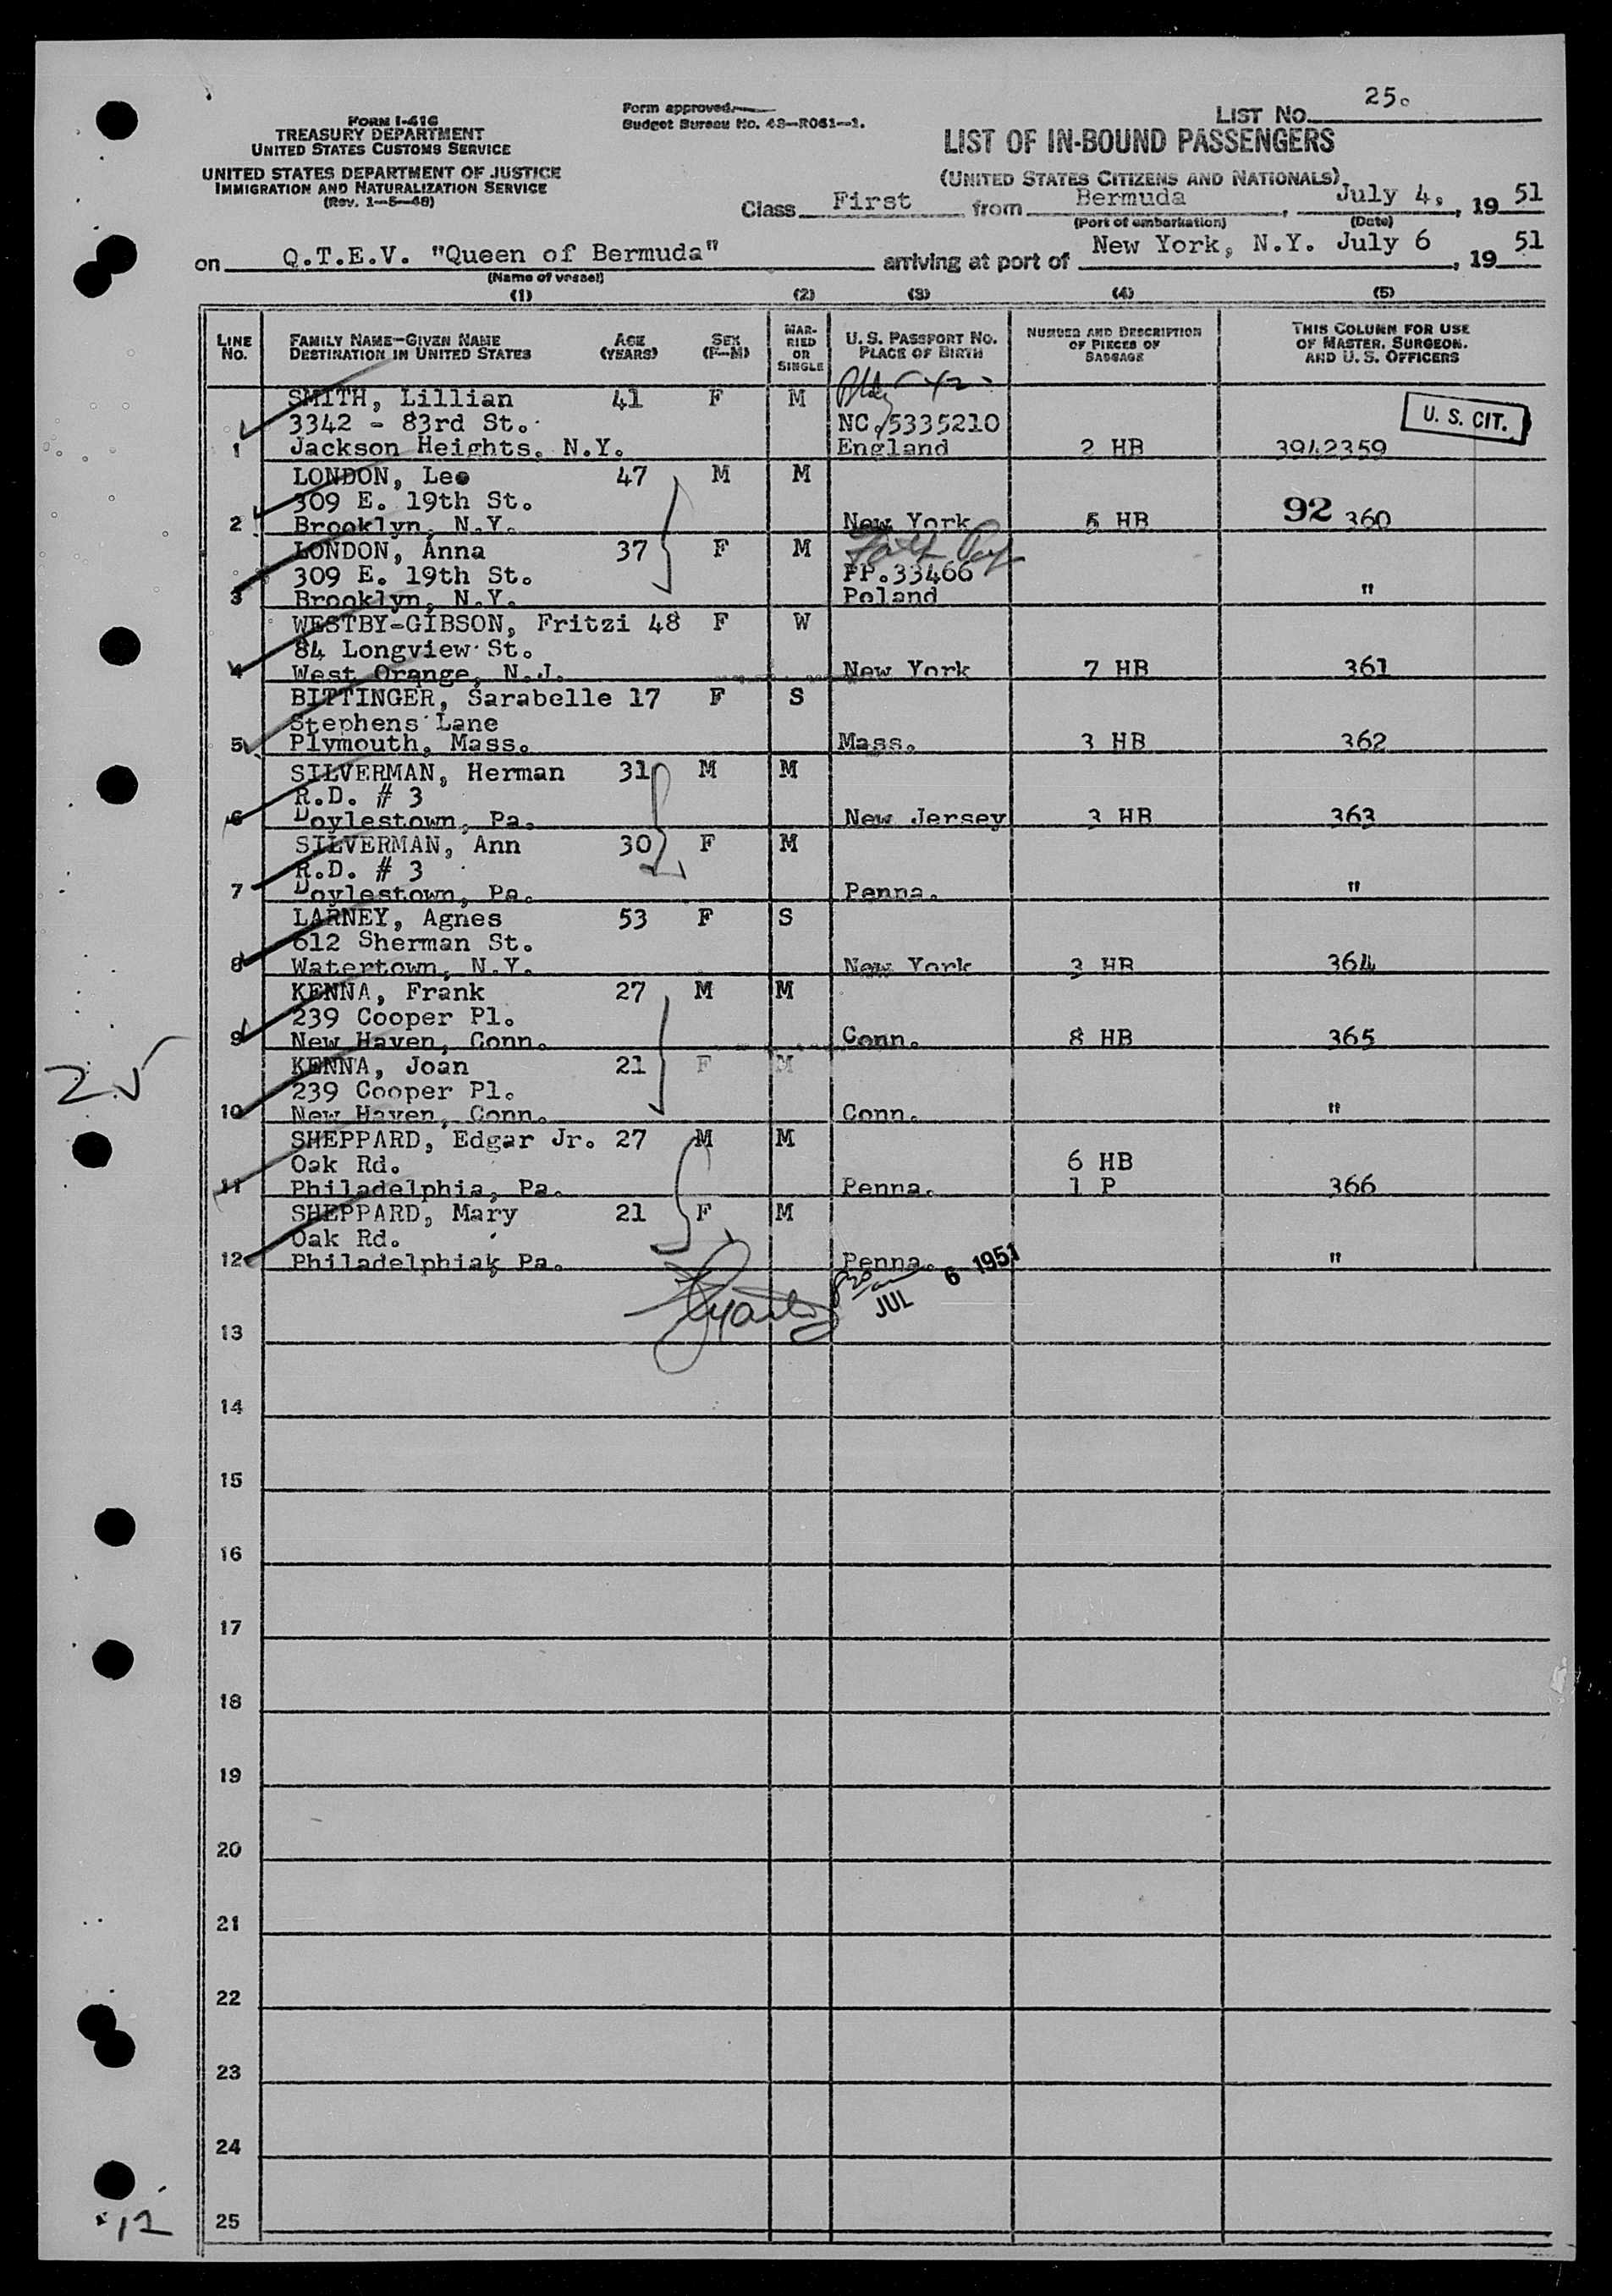 25.
LIST NO.
FORM I-416
TREASURY DEPARTMENT
UNITED STATES CUSTOMS SERVICE
UNITED STATES DEPARTMENT OF JUSTICE
IMMIGRATION AND NATURALIZATION SERVICE
(Rev. 1-5-48)
Form approved.
Budget Bureau No. 43-R061-1.
LIST OF IN-BOUND PASSENGERS
(UNITED STATES CITIZENS AND NATIONALS)
Class First from Bermuda, July 4, 1951
(Port of embarkation) (Date)
on Q.T.E.V. "Queen of Bermuda" arriving at port of New York, N.Y. July 6, 1951
(Name of vessel)
(1) (2) (3) (4) (5)
LINE No. FAMILY NAME-GIVEN NAME DESTINATION IN UNITED STATES AGE (YEARS) SEX (F-M) MAR-RIED OR SINGLE U. S. PASSPORT NO. PLACE OF BIRTH NUMBER AND DESCRIPTION OF PIECES OF BAGGAGE THIS COLUMN FOR USE OF MASTER, SURGEON, AND U. S. OFFICERS
SMITH, Lillian 41 F M
3342 - 83rd St. NC.5335210 U. S. CIT.
1 Jackson Heights, N.Y. England 2 HB 3942359
LONDON, Leo 47 M M
309 E. 19th St.
2 Brooklyn, N.Y. New York 5 HB 92 360
LONDON, Anna 37 F M
309 E. 19th St. PP.33466
3 Brooklyn, N.Y. Poland "
WESTBY-GIBSON, Fritzi 48 F W
84 Longview St.
4 West Orange, N.J. New York 7 HB 361
BITTINGER, Sarabelle 17 F S
Stephens Lane
5 Plymouth, Mass. Mass. 3 HB 362
SILVERMAN, Herman 31 M M
R.D. # 3
6 Doylestown, Pa. New Jersey 3 HB 363
SILVERMAN, Ann 30 F M
R.D. # 3
7 Doylestown, Pa. Penna. "
LARNEY, Agnes 53 F S
612 Sherman St.
8 Watertown, N.Y. New York 3 HB 364
KENNA, Frank 27 M M
239 Cooper Pl.
9 New Haven, Conn. Conn. 8 HB 365
KENNA, Joan 21 F M
25
239 Cooper Pl.
10 New Haven, Conn. Conn. "
SHEPPARD, Edgar Jr. 27 M M
Oak Rd. 6 HB
11 Philadelphia, Pa. Penna. 1 P 366
SHEPPARD, Mary 21 F M
Oak Rd.
12 Philadelphiak Pa. Penna. "
JUL 6 1951
13
14
15
16
17
18
19
20
21
22
23
24
25
12